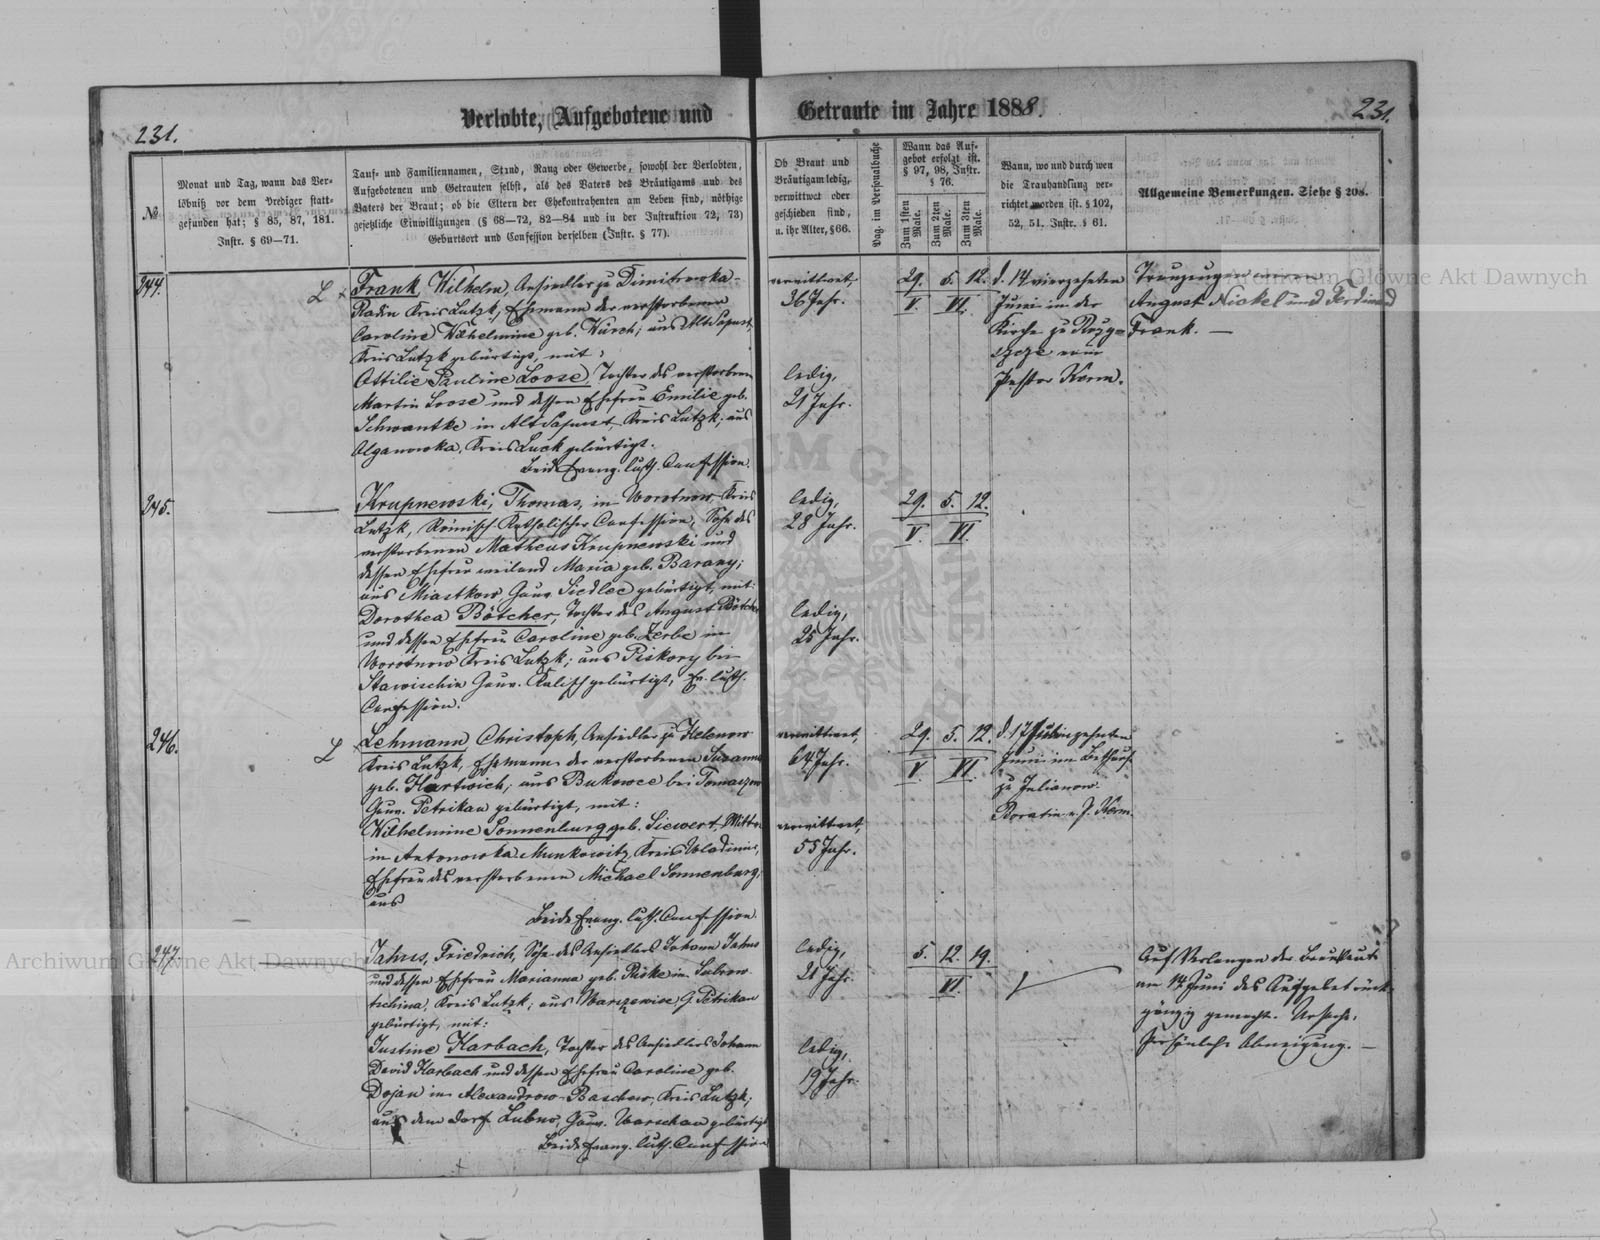 231.
Verlobte, Aufgebotene und
Getraute im Jahre 1888.
231.
No.
Monat und Tag, wann das Ver-
löbniß vor dem Prediger statt-
gefunden hat; § 85, 87, 181.
Instr. § 69—71.
Tauf- und Familiennamen, Stand, Rang oder Gewerbe, sowohl der Verlobten,
Aufgebotenen und Getrauten selbst, als des Vaters des Bräutigams und des
Vaters der Braut; ob die Eltern der Ehekontrahenten am Leben sind, nöthige
gesetzliche Einwilligungen (§ 68—72, 82—84 und in der Instruktion 72, 73)
Geburtsort und Confession derselben (Instr. § 77).
Ob Braut und
Bräutigam ledig,
verwittwet oder
geschieden sind,
u. ihr Alter, § 66.
Pag. im Personalbuche
Wann das Auf-
gebot erfolgt ist.
§ 97, 98, Instr.
§ 76.
Zum 1sten
Male.
Zum 2ten
Male.
Zum 3ten
Male.
Wann, wo und durch wen
die Trauhandlung ver-
richtet worden ist. § 102,
52, 51. Instr. § 61.
Allgemeine Bemerkungen. Siehe § 208.
244.
L ×
Frank, Wilhelm, Ansiedler zu Dimitrowka-
Radin Kreis Lutzk, Ehemann der verstorbenen
Caroline Wilhelmine geb. Würch; aus Alt Sapust,
Kreis Lutzk gebürtigt, mit:
Ottilie Pauline Loose, Tochter des verstorbenen
Martin Loose und dessen Ehefrau Emilie geb.
Schwantke in Alt Sapust, Kreis Lutzk; aus
Olganowka, Kreis Luck gebürtigt.
Beide Evang. luth. Confession.
verwittwet,
36 Jahr.
ledig,
21 Jahr.
29. 5. 12.
V. VI.
d. 14 vierzehnten
Juni in der
Kirche zu Rozy-
szcze vom
Pastor Kerm.
Trauzeugen waren
August Nickel und Ferdinand
Frank. —
245.
Krupnewski, Thomas, in Worotnow Kreis
Lutzk, Römisch-Katholischer Confession, Sohn des
verstorbenen Matheus Krupnewski und
dessen Ehefrau weiland Maria geb. Barany;
aus Miastkow, Gouv. Siedlce gebürtigt, mit:
Dorothea Bötcher, Tochter des August Bötcher
und dessen Ehefrau Caroline geb. Zerbe in
Worotnow Kreis Lutzk; aus Piskory bei
Stawischin Gouv. Kalisch gebürtigt, Ev. luth.
Confession.
ledig,
28 Jahr.
ledig,
25 Jahr.
29. 5. 12.
V. VI.
246.
L ×
Lehmann, Christoph, Ansiedler zu Helenow
Kreis Lutzk, Ehemann der verstorbenen Susanna
geb. Hartwich; aus Bukowce bei Tomaszow
Gouv. Petrikau gebürtigt, mit:
Wilhelmine Sonnenburg geb. Siewert, Wittwe
in Antonowka Munkowitz Kreis Wladimir,
Ehefrau des verstorbenen Michael Sonnenburg;
aus
Beide Evang. luth. Confession.
verwittwet,
64 Jahr.
verwittwet,
55 Jahr.
29. 5. 12.
V. VI.
d. 17 siebenzehnten
Juni im Bethause
zu Julianow-
Boratin v. P. Kerm.
247.
Jahns, Friedrich, Sohn des Ansiedlers Johann Jahns
und dessen Ehefrau Marianna geb. Riske in
tschina, Kreis Lutzk; aus G. Petrikau
gebürtigt, mit:
Justine Harbach, Tochter des Ansiedlers Johann
David Harbach und dessen Ehefrau Caroline geb.
Dojan in Alexandrow-Baschow, Kreis Lutzk;
aus dem Dorf Lubno, Gouv. Warschau gebürtigt
Beide Evang. luth. Confession
ledig,
21 Jahr.
ledig,
19 Jahr.
5. 12. 19.
VI.
Auf Verlangen der Brautleute
am 14. Juni das Aufgebot rück-
gängig gemacht. Ursache:
Persönliche Abneigung. —
Archiwum Główne Akt Dawnych
Archiwum Główne Akt Dawnych